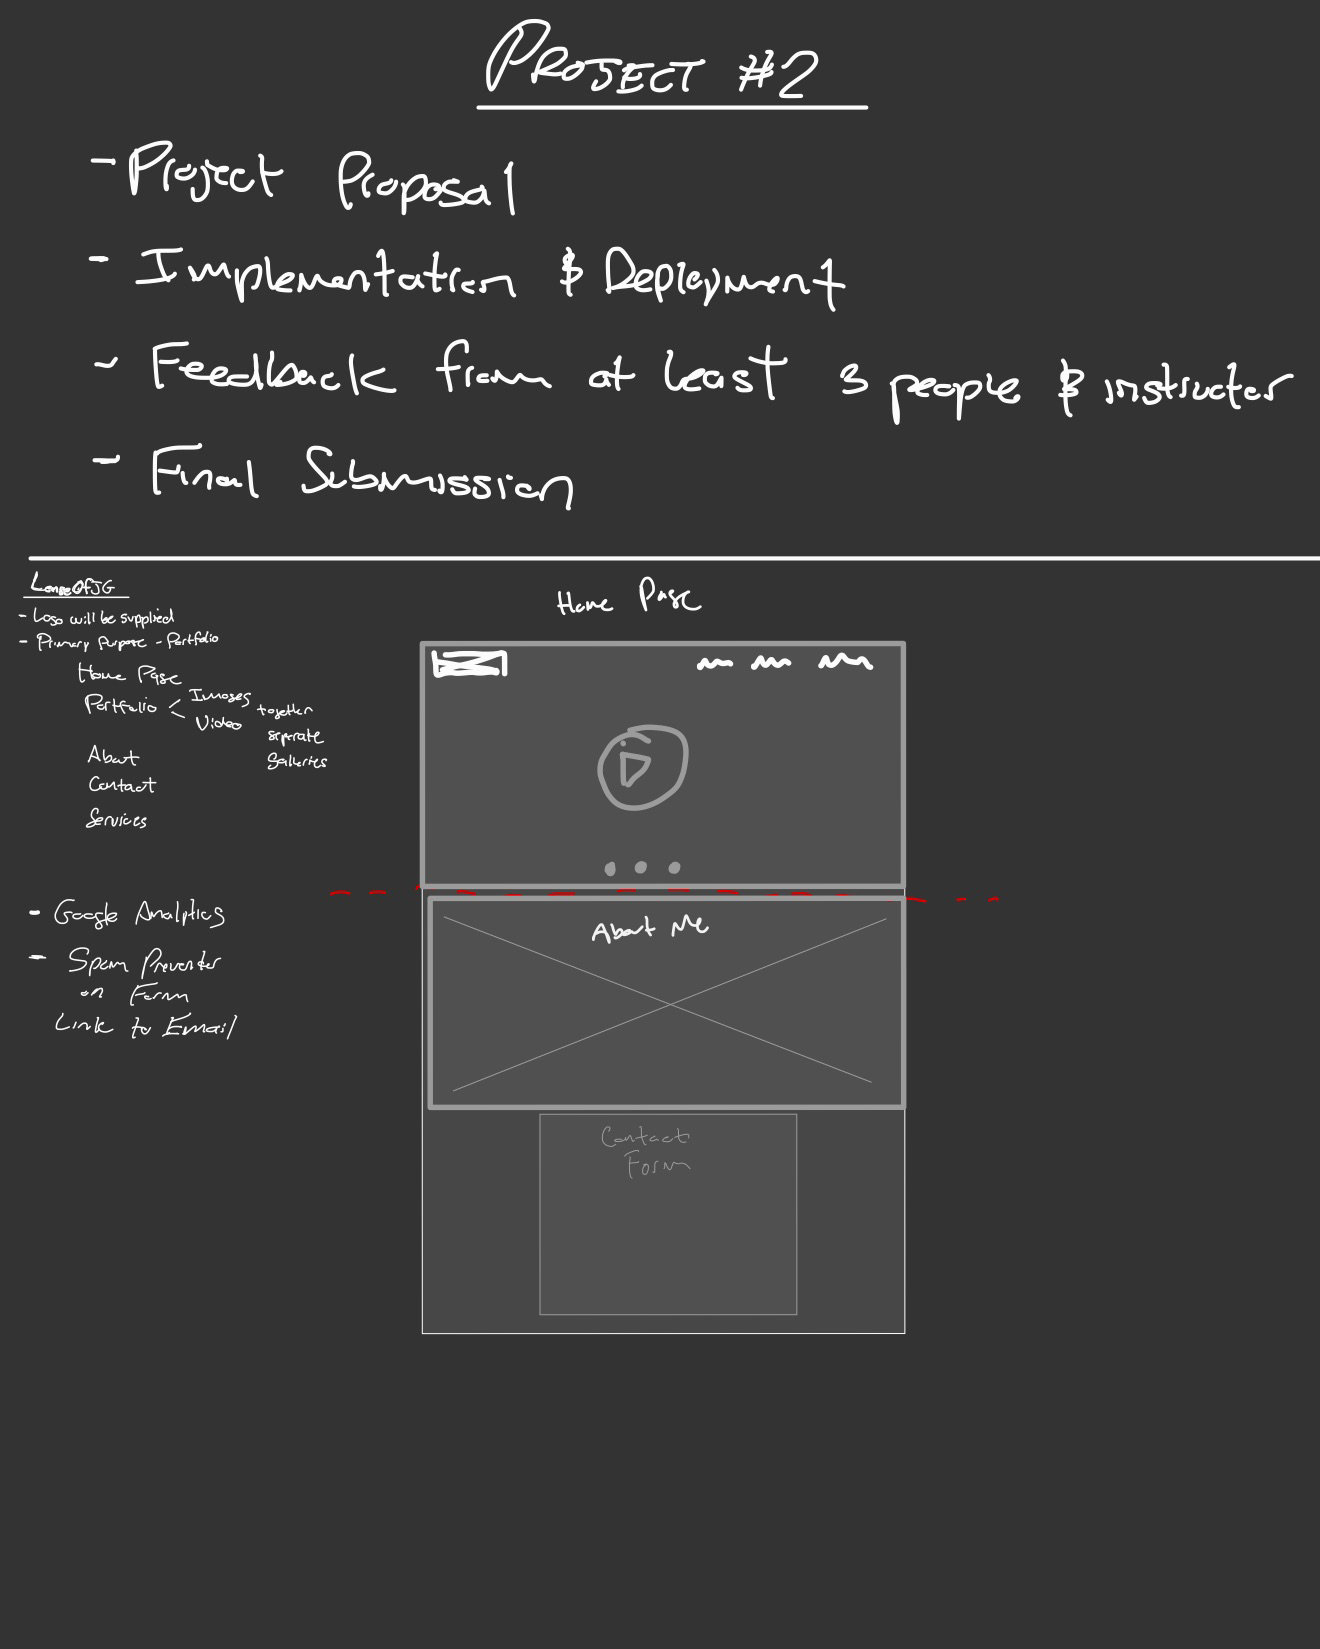 PROJECT #2
- Project Proposal
- Implementation & Deployment
- Feedback from at least 3 people & instructor
- Final Submission
LenseOfJG
- Logo will be supplied
- Primary Purpose - Portfolio
Home Page
Portfolio < Images
Video
together
seprate
Galleries
About
Contact
Services
- Google Analytics
- Spam Preventer
on Form
Link to Email
Home Page
About Me
Contact
Form